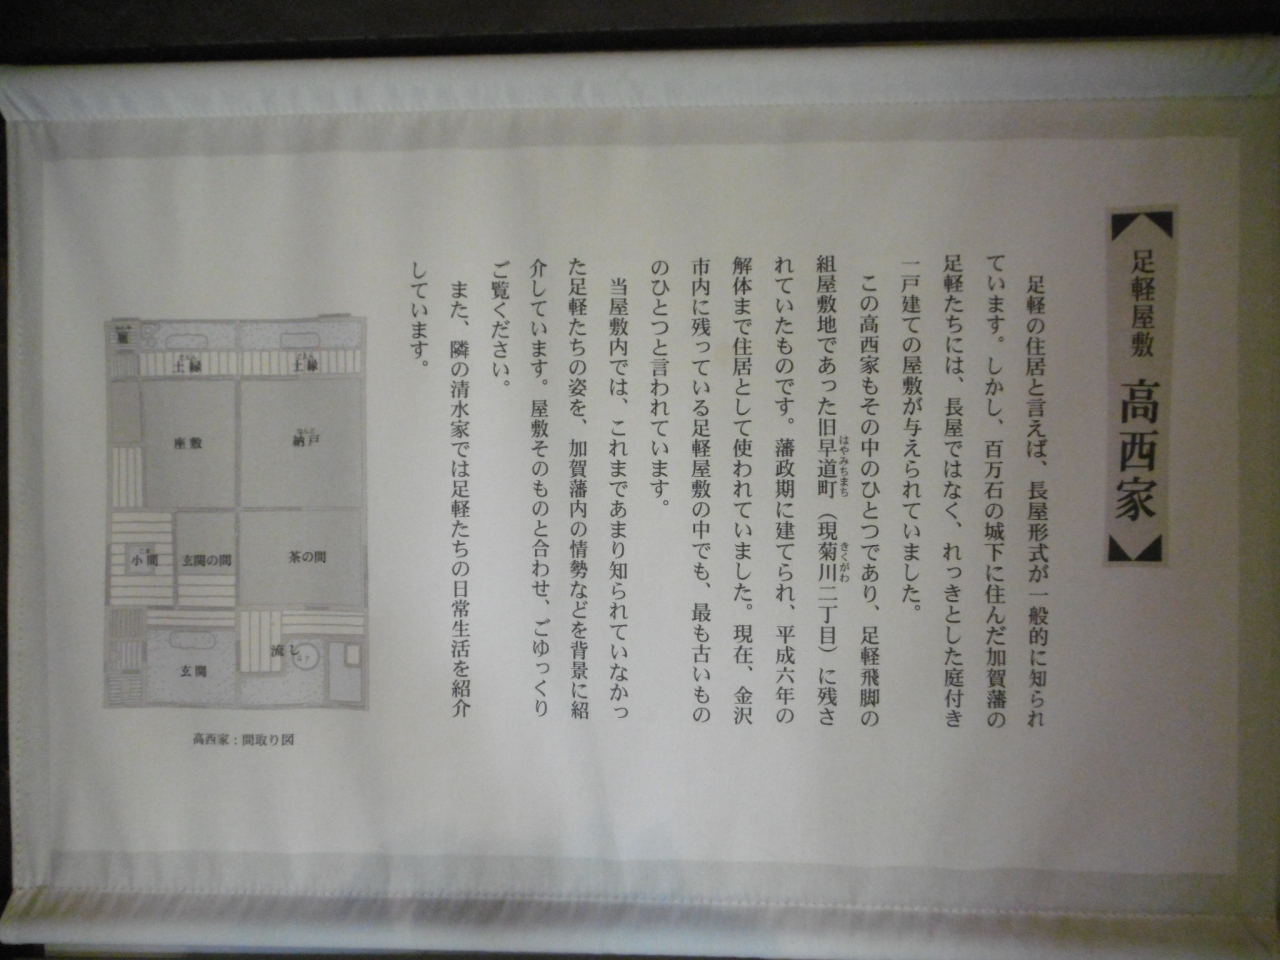 足軽屋敷 高西家
足軽の住居と言えば、長屋形式が一般的に知られ
ています。しかし、百万石の城下に住んだ加賀藩の
足軽たちには、長屋ではなく、れっきとした庭付き
一戸建ての屋敷が与えられていました。
この高西家もその中のひとつであり、足軽飛脚の
はやみちまち
きくがわ
組屋敷地であった旧早道町（現菊川二丁目）に残さ
れていたものです。藩政期に建てられ、平成六年の
解体まで住居として使われていました。現在、金沢
市内に残っている足軽屋敷の中でも、最も古いもの
のひとつと言われています。
当屋敷内では、これまであまり知られていなかっ
た足軽たちの姿を、加賀藩内の情勢などを背景に紹
介しています。屋敷そのものと合わせ、ごゆっくり
ご覧ください。
また、隣の清水家では足軽たちの日常生活を紹介
しています。
土縁
土縁
座敷
なんど
納戸
小間
玄関の間
茶の間
玄関
流し
高西家：間取り図